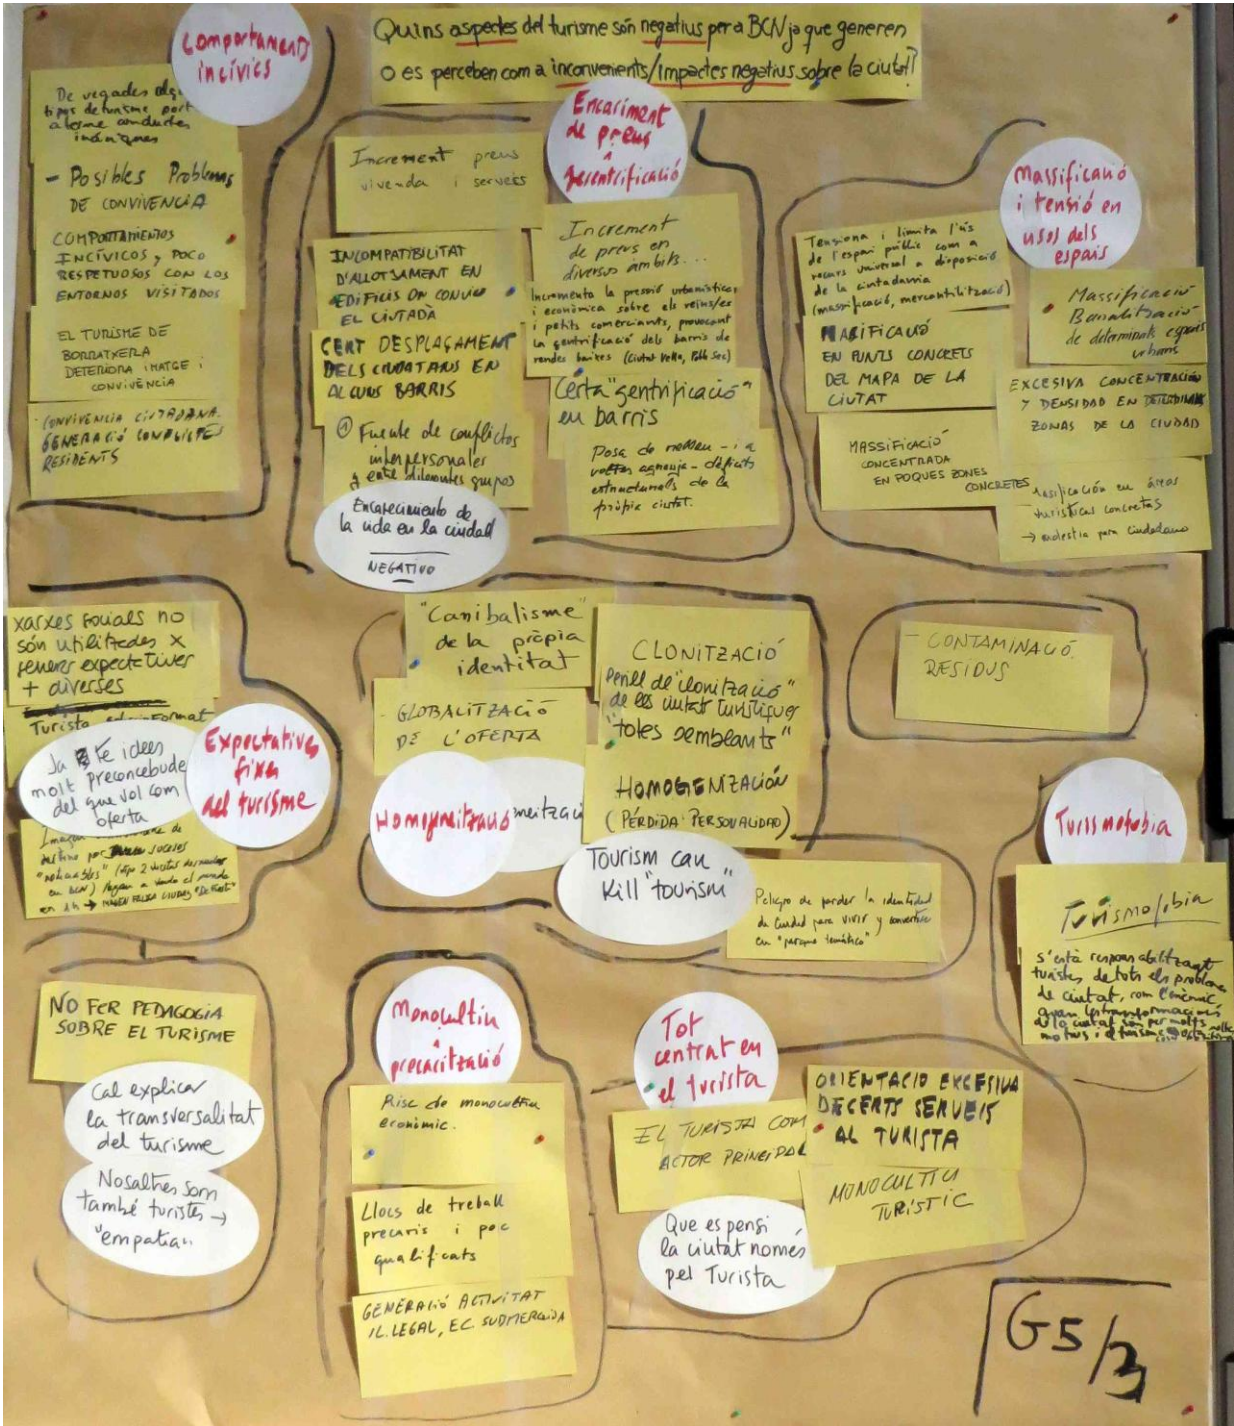 Quins aspectes del turisme són negatius per a BCN ja que generen
O es perceben com a inconvenients/impactes negatius sobre la ciutat?
Comportaments
incívics
De vegades
tipus de turisme port
a terme conductes
- Posibles Problemas
DE CONVIVENCIA
COMPORTAMIENTOS
INCÍVICOS y POCO
RESPETUOSOS CON LOS
ENTORNOS VISITADOS
EL TURISME DE
BORRATXERA
DETERIORA IMATGE i
CONVIVÈNCIA
- CONVIVENCIA CIUTADANA.
GENERACIÓ CONFLICTES
RESIDENTS
Encariment
de preus
Increment preus
vivenda i serveis
INCOMPATIBILITAT
D'ALLOTJAMENT EN
EDIFICIS ON CONVIU
EL CIUTADÀ
CERT DESPLAÇAMENT
DELS CIUTATANS EN
ALGUNS BARRIS
① Fuente de conflictos
interpersonales
y entre diferentes grupos
Encarecimiento de
la vida en la ciudad
NEGATIVO
Increment
de preus en
diversos àmbits...
Incrementa la pressió urbanística
i econòmica sobre els veïns/es
i petits comerciants, provocant
la gentrificació dels barris de
rendes baixes (Ciutat Vella, Poble Sec)
Certa "gentrificació"
en barris
Posa de relleu - i a
voltes agreuja - dèficits
estructurals de la
pròpia ciutat.
Massificació
i tensió en
usos dels
espais
Tensiona i limita l'ús
de l'espai públic com a
recurs universal a disposició
de la ciutadania
(massificació, mercantilització)
MASIFICACIÓ
EN PUNTS CONCRETS
DEL MAPA DE LA
CIUTAT
MASSIFICACIÓ
CONCENTRADA
EN POQUES ZONES
CONCRETES
Massificació
Banalització
de determinats espais
urbans
EXCESIVA CONCENTRACIÓN
Y DENSIDAD EN
ZONAS DE LA CIUDAD
Masificación en áreas
turísticas concretas
→ molestia para ciudadano
xarxes socials no
són utilitzades x
generar expectatives
+ diverses
Turista
Ja té idees
molt preconcebudes
del que vol com
oferta
Expectatives
fixes
del turisme
Imagen
"Canibalisme"
de la pròpia
identitat
- GLOBALITZACIÓ
DE L'OFERTA
Homogeneització
CLONITZACIÓ
Perill de "clonització"
de les ciutats turístiques
"totes semblants"
HOMOGENIZACIÓN
(PÉRDIDA PERSONALIDAD)
Tourism can
Kill "tourism"
Peligro de perder la identidad
de ciudad para vivir y convertirse
en "parque temático"
- CONTAMINACIÓ.
RESIDUS
Turismofobia
Turismofobia
s'està responsabilitzant
turistes de tots els problemes
de ciutat, com l'incivisme,
quan les transformacions
de la ciutat són per molts
motius i el turisme
NO FER PEDAGOGIA
SOBRE EL TURISME
Cal explicar
la transversalitat
del turisme
Nosaltres som
també turistes →
"empatia"
Monocultiu
i
precarització
Risc de monocultiu
econòmic.
Llocs de treball
precaris i poc
qualificats
GENERACIÓ ACTIVITAT
IL.LEGAL, EC. SUDMERGIDA
Tot
centrat en
el turista
EL TURISTA COM
ACTOR PRINCIPAL
ORIENTACIO EXCESIVA
DE CERTS SERVEIS
AL TURISTA
MONOCULTIU
TURÍSTIC
Que es pensi
la ciutat només
pel Turista
G5/3